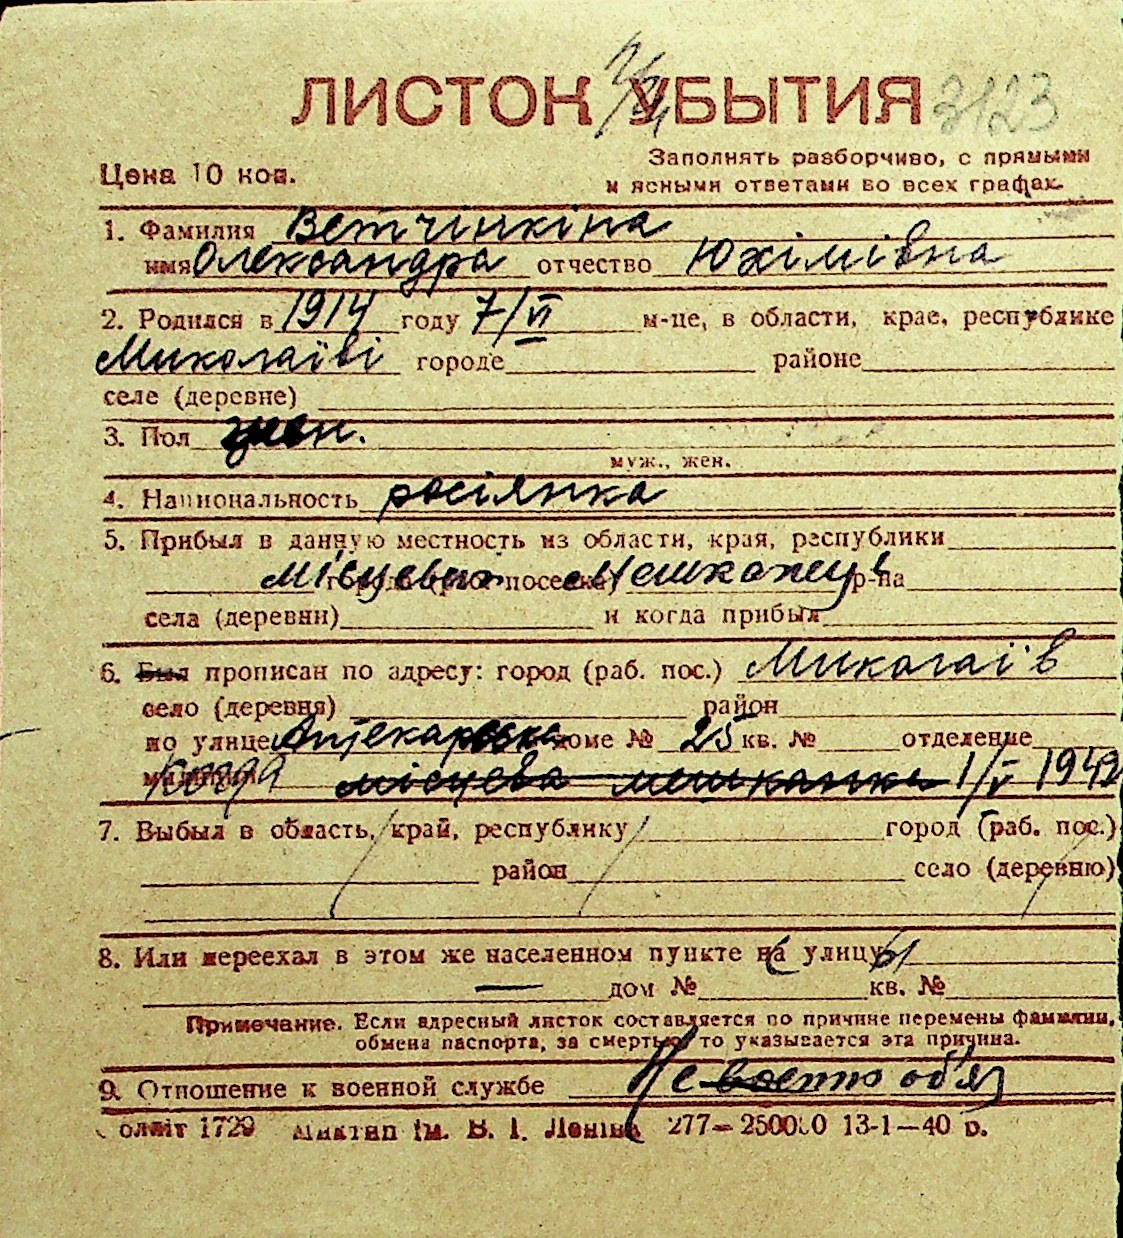 ЛИСТОК УБЫТИЯ 3123
Цена 10 коп.
Заполнять разборчиво, с прямыми
и ясными ответами во всех графах.
1. Фамилия Ветчінкіна
имя Олександра отчество Юхімівна
2. Родился в 1914 году 7/VI м-це, в области, крае, республике
Миколаїві городе районе
селе (деревне)
3. Пол жен.
муж., жен.
4. Национальность росіянка
5. Прибыл в данную местность из области, края, республики
города (раб. поселка) р-на
Місцевий мешканец
села (деревни) и когда прибыл
6. Был прописан по адресу: город (раб. пос.) Миколаїв
село (деревня) район
по улице Аптекарська доме № 25 кв. № отделение
милиции когда місцева мешканка 1/V 1943
7. Выбыл в область, край, республику город (раб. пос.)
район село (деревню)
8. Или переехал в этом же населенном пункте на улицу
— дом № кв. №
Примечание. Если адресный листок составляется по причине перемены фамилии,
обмена паспорта, за смертью, то указывается эта причина.
9. Отношение к военной службе Не военно об'яз
олліт 1729 Миктип ім. В. І. Леніна 277—250000 13-1—40 р.